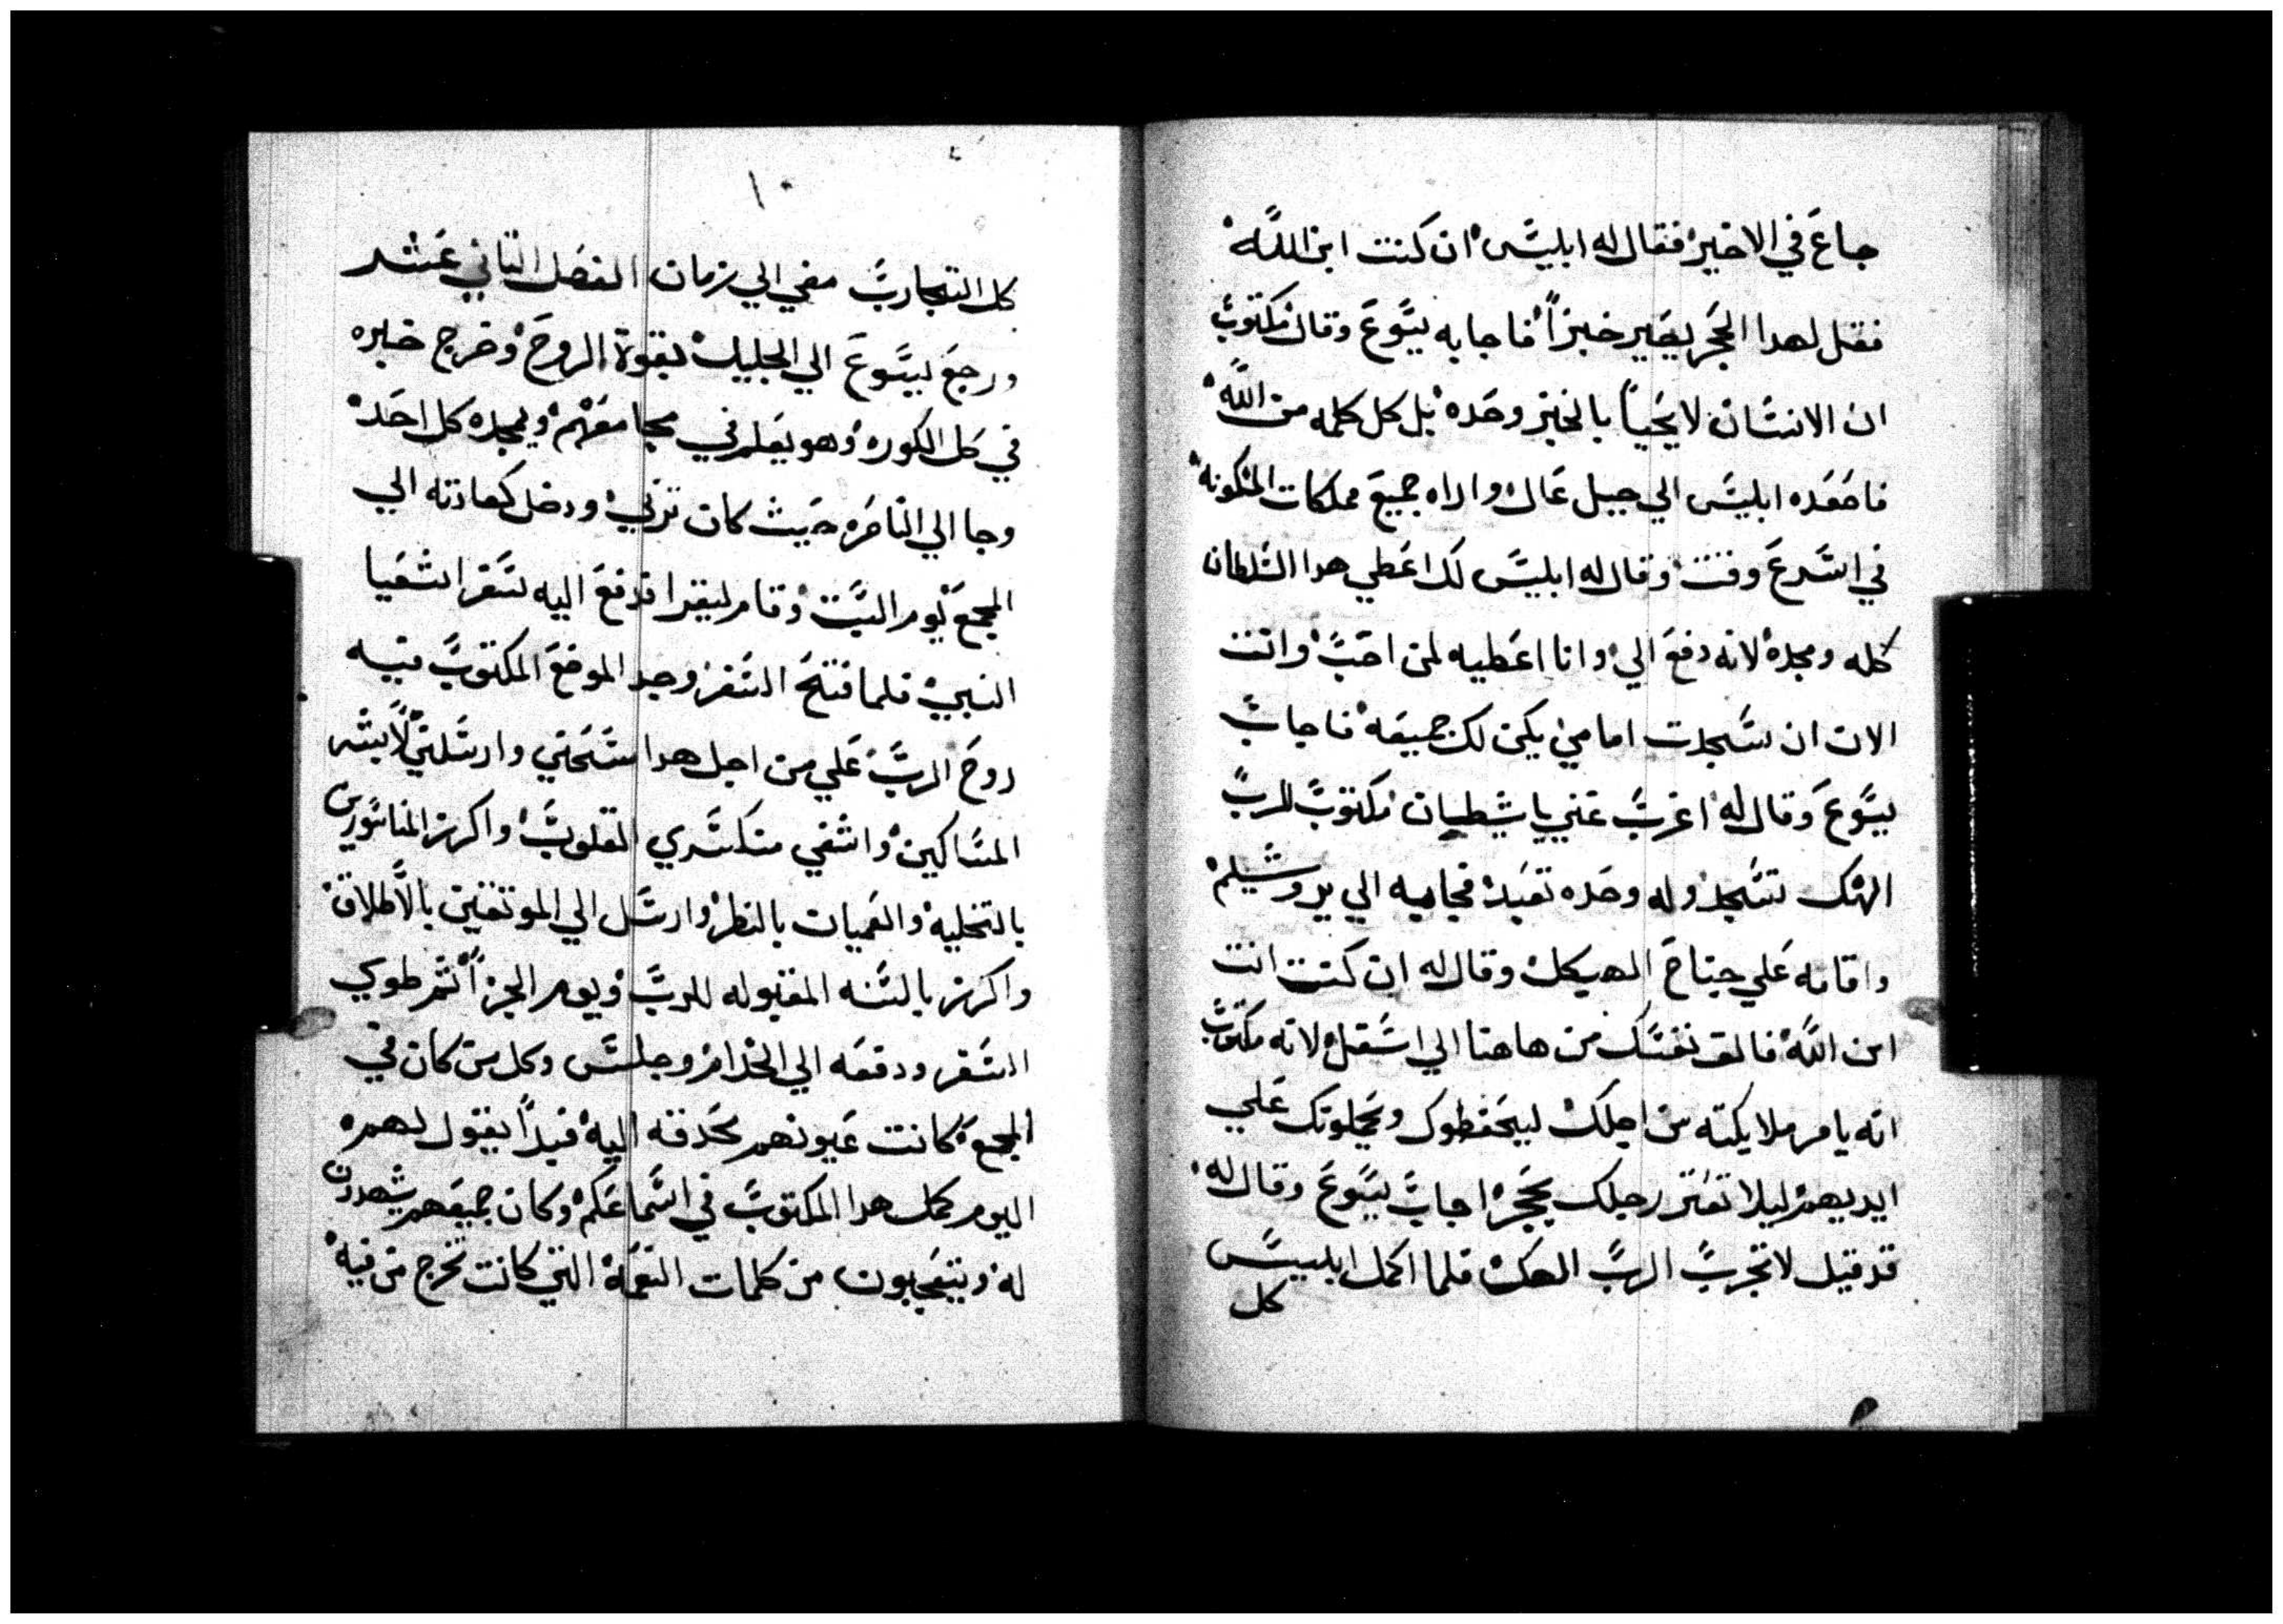 جاع في الاخير فقال له ابليس ان كنت ابن الله
فقل لهدا الحجر يصير خبزاً فاجابه يسوع وقال مكتوب
ان الانسان لا يحيا بالخبز وحده بل كل كلمه من الله
فاصعده ابليس الي جبل عال واراه جميع مملكات المسكونه
في اسرع وقت وقال له ابليس لك اعطي هدا السلطان
كله ومجده لانه دفع الي وانا اعطيه لمن احب وانت
الان ان سجدت امامي يكن لك جميعه فاجاب
يسوع وقال له اغرب عني يا شيطان مكتوب للرب
الهك تسجد وله وحده تعبد فجا به الي يروشليم
واقامه علي جناح الهيكل وقال له ان كنت انت
ابن الله فالق نفسك من هاهنا الي اسفل لانه مكتوب
انه يامر ملايكته من اجلك ليحفظوك ويحملونك علي
ايديهم ليلا تعتر رجلك بحجر اجاب يسوع وقال له
قد قيل لا تجرب الرب الهك فلما اكمل ابليس
كل
١٠
كل التجارب مضي الي زمان الفصل التاني عشر
ورجع يسوع الي الجليل بقوة الروح وخرج خبره
في كل الكوره وهو يعلم في مجامعهم ويمجده كل احد
وجا الي الناصره حيث كان تربي ودخل كعادته الي
المجمع يوم السبت وقام ليقرا فدفع اليه سفر اشعيا
النبي فلما فتح السفر وجد الموضع المكتوب فيه
روح الرب علي من اجل هدا مسحني وارسلني لابشر
المساكين واشفي منكسري القلوب واكرز للماسورين
بالتخليه والعميان بالنظر وارسل الي الموتقين بالاطلاق
واكرز بالسنه المقبوله للرب ويوم الجزا ثم طوي
السفر ودفعه الي الخدام وجلس وكل من كان في
المجمع كانت عيونهم محدقه اليه فبدا يقول لهم
اليوم كمل هدا المكتوب في اسماعكم وكان جميعهم يشهدون
له ويتعجبون من كلمات النعمه التي كانت تخرج من فيه